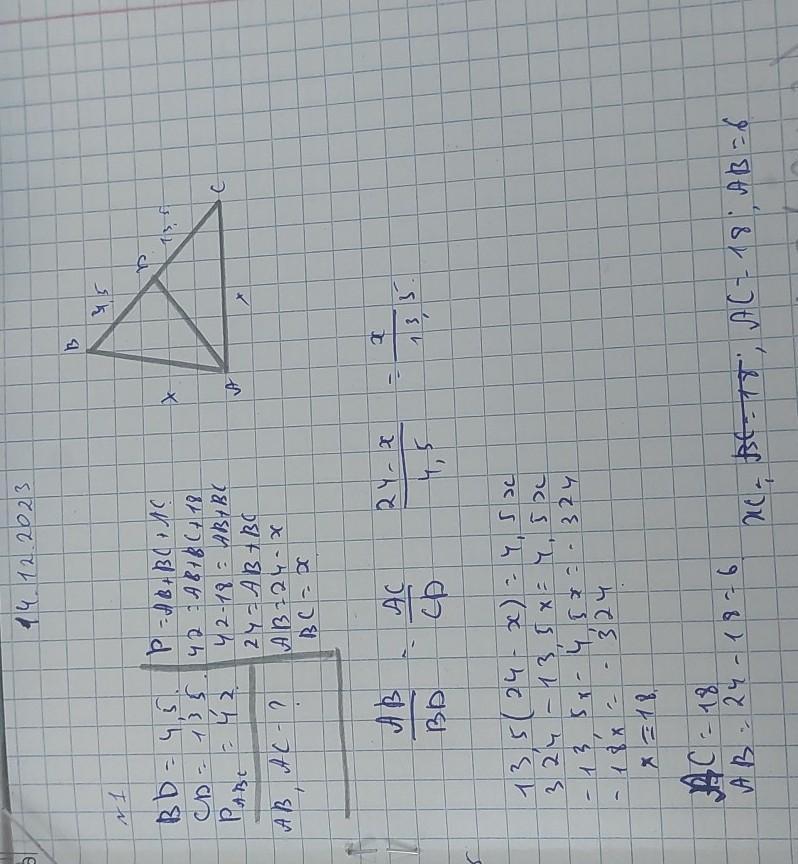 14.12.2023
№1
BD = 4,5.
CD = 13,5.
P ABC = 42
AB, AC - ?
P = AB+BC+AC
42 = AB+BC+18
42-18 = AB+BC
24 = AB+BC
AB = 24-x
BC = x
B
4,5
D
13,5
C
x
A
x
AB/BD = AC/CD
24-x/4,5 = x/13,5.
13,5(24-x) = 4,5x
324 - 13,5x = 4,5x
-13,5x - 4,5x = -324
-18x = -324
x = 18
AC = 18
AB = 24-18 = 6.
BC = 18; AC = 18; AB = 6